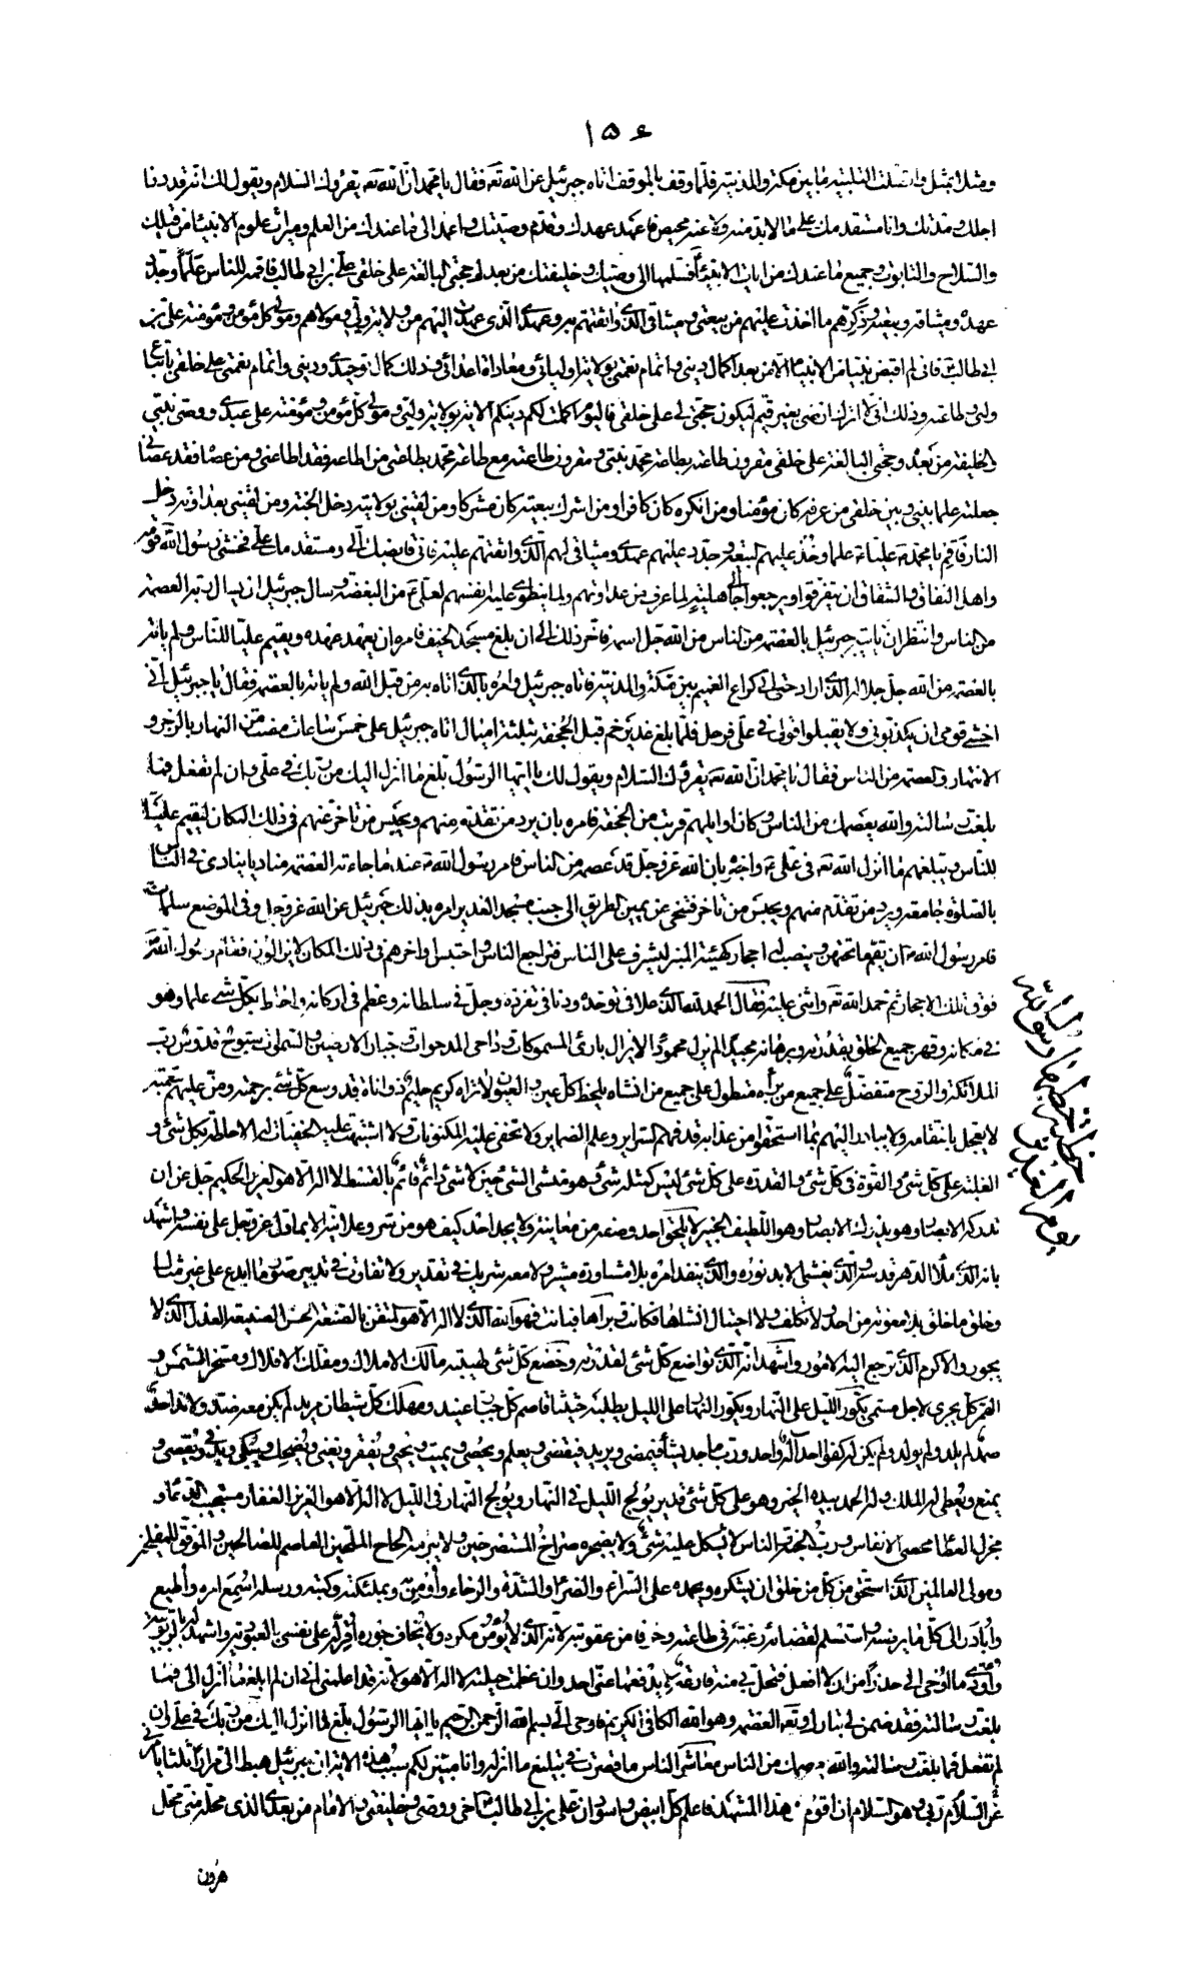 ۱۵۶
ومثلا بمثل واتصلت التلبیة ما بین مکة والمدینة فلما وقف بالموقف اتاه جبرئیل عن الله تعه فقال یا محمد ان الله تعه یقرؤک السلام ویقول لک انه قد دنا
اجلک ومدتک وانا مستقدمک علی ما لا بد منه ولا عنه محیص فاعهد عهدک وقدم وصیتک واعمد الی ما عندک من العلم ومیراث علوم الانبیاء من قبلک
والسلاح والتابوت وجمیع ما عندک من ایات الانبیاء فسلمها الی وصیک وخلیفتک من بعدک حجتی البالغة علی خلقی علی بن ابی طالب فاقمه للناس علما وجدد
عهده ومیثاقه وبیعته وذکرهم ما اخذت علیهم من بیعتی ومیثاقی الذی واثقتهم به وعهدی الذی عهدت الیهم من ولایة ولیی ومولاهم ومولی کل مؤمن ومؤمنة علی بن
ابی طالب ع فانی لم اقبض نبیا من الانبیاء الا من بعد اکمال دینی واتمام نعمتی بولایة اولیائی ومعاداة اعدائی وذلک کمال توحیدی ودینی واتمام نعمتی علی خلقی باتباع
ولیی وطاعته وذلک انی لا اترک ارضی بغیر قیم لیکون حجة لی علی خلقی فالیوم اکملت لکم دینکم الایة بولایة ولیی ومولی کل مؤمن ومؤمنة علی عبدی ووصی نبیی
والخلیفة من بعده وحجتی البالغة علی خلقی مقرون طاعته بطاعة محمد نبیی ومقرون طاعته مع طاعة محمد بطاعتی من اطاعه فقد اطاعنی ومن عصاه فقد عصانی
جعلته علما بینی وبین خلقی من عرفه کان مؤمنا ومن انکره کان کافرا ومن اشرک ببیعته کان مشرکا ومن لقینی بولایته دخل الجنة ومن لقینی بعداوته دخل
النار فاقم یا محمد علیا ع علما وخذ علیهم البیعة وجدد علیهم عهدی ومیثاقی لهم الذی واثقتهم علیه فانی قابضک الی ومستقدمک علی فخشی رسول الله قومه
واهل النفاق والشقاق ان یتفرقوا ویرجعوا الی جاهلیة لما عرف من عداوتهم ولما ینطوی علیه انفسهم لعلی ع من البغضة وسال جبرئیل ان یسال ربه العصمة
من الناس وانتظر ان یاتیه جبرئیل بالعصمة من الناس من الله جل اسمه فاخر ذلک الی ان بلغ مسجد الخیف فامره ان یعهد عهده ویقیم علیا للناس ولم یاته
بالعصمة من الله جل جلاله الذی اراد حتی اتی کراع الغمیم بین مکة والمدینة فاتاه جبرئیل وامره بالذی اتاه به من قبل الله ولم یاته بالعصمة فقال یا جبرئیل انی
اخشی قومی ان یکذبونی ولا یقبلوا قولی فی علی فرحل فلما بلغ غدیر خم قبل الجحفة بثلثة امیال اتاه جبرئیل علی خمس ساعات مضت من النهار بالزجر و
الانتهار والعصمة من الناس فقال یا محمد ان الله تعه یقرؤک السلام ویقول لک یا ایها الرسول بلغ ما انزل الیک من ربک فی علی وان لم تفعل فما
بلغت رسالته والله یعصمک من الناس وکان اوایلهم قریب من الجحفة فامره بان یرد من تقدم منهم ویحبس من تاخر عنهم فی ذلک المکان لیقیم علیا
للناس ویبلغهم ما انزل الله تعه فی علی ع واخبره بان الله عز وجل قد عصمه من الناس فامر رسول الله عند ما جاءته العصمة منادیا ینادی فی الناس
بالصلوة جامعة ویرد من تقدم منهم ویحبس من تاخر فتنحی عن یمین الطریق الی جنب مسجد الغدیر امره بذلک جبرئیل عن الله عز وجل وفی الموضع سلمات
فامر رسول الله ان یقم ما تحتهن وینصب له احجار کهیئة المنبر لیشرف علی الناس فتراجع الناس واحتبس اواخرهم فی ذلک المکان لا یزالون فقام رسول الله
فوق تلک الاحجار ثم حمد الله تعه واثنی علیه فقال الحمد لله الذی علا فی توحده ودنا فی تفرده وجل فی سلطانه وعظم فی ارکانه واحاط بکل شیء علما وهو
فی مکانه وقهر جمیع الخلق بقدرته وبرهانه مجیدا لم یزل محمودا لا یزال بارئ المسموکات وداحی المدحوات وجبار الارضین والسموات سبوح قدوس رب
الملائکة والروح متفضل علی جمیع من برأه متطول علی جمیع من انشاه یلحظ کل عین والعیون لا تراه کریم حلیم ذو اناة قد وسع کل شیء برحمته ومن علیهم بنعمته
لا یعجل بانتقامه ولا یبادر الیهم بما استحقوا من عذابه قد فهم السرایر وعلم الضمایر ولا تخفی علیه المکنونات ولا اشتبهت علیه الخفیات له الاحاطة بکل شئ و
الغلبة علی کل شئ والقوة فی کل شئ والقدرة علی کل شئ لیس کمثله شئ وهو منشئ الشئ حین لا شئ دائم قائم بالقسط لا اله الا هو العزیز الحکیم جل عن ان
تدرکه الابصار وهو یدرک الابصار وهو اللطیف الخبیر لا یلحق احد وصفه من معاینة ولا یجد احد کیف هو من سر وعلانیة الا بما دل عز وجل علی نفسه واشهد
بانه الذی ملأ الدهر قدسه والذی یغشی الابد نوره والذی ینفذ امره بلا مشاورة مشیر ولا معه شریک فی تقدیر ولا تفاوت فی تدبیر صور ما ابدع علی غیر مثال
وخلق ما خلق بلا معونة من احد ولا تکلف ولا احتیال انشاها فکانت وبرأها فبانت فهو الله الذی لا اله الا هو المتقن الصنعة الحسن الصنیعة العدل الذی لا
یجور والاکرم الذی ترجع الیه الامور واشهد انه الذی تواضع کل شئ لقدرته وخضع کل شئ لهیبته مالک الاملاک ومفلک الافلاک ومسخر الشمس و
القمر کل یجری لاجل مسمی یکور اللیل علی النهار ویکور النهار علی اللیل یطلبه حثیثا قاصم کل جبار عنید ومهلک کل شیطان مرید لم یکن معه ضد ولا ند احد
صمد لم یلد ولم یولد ولم یکن له کفوا احد اله واحد ورب ماجد یشأ فیمضی ویرید فیقضی ویعلم ویحصی ویمیت ویحیی ویفقر ویغنی ویضحک ویبکی ویدنی ویقصی و
یمنع ویعطی له الملک وله الحمد بیده الخیر وهو علی کل شئ قدیر یولج اللیل فی النهار ویولج النهار فی اللیل لا اله الا هو العزیز الغفار مستجیب الدعاء و
مجزل العطا محصی الانفاس ورب الجنة والناس لا یشکل علیه شئ ولا یضجره صراخ المستصرخین ولا یبرمه الحاح الملحین العاصم للصالحین والموفق للمفلحین
ومولی العالمین الذی استحق من کل من خلق ان یشکره ویحمده علی السراء والضراء والشدة والرخاء واؤمن به وبملئکته وکتبه ورسله اسمع امره واطیع
وابادر الی کل ما یرضیه واستسلم لقضائه رغبة فی طاعته وخوفا من عقوبته لانه الله الذی لا یؤمن مکره ولا یخاف جوره اقر له علی نفسی بالعبودیة واشهد له بالربوبیة
واؤدی ما اوحی الی حذرا من ان لا افعل فتحل بی منه قارعة لا یدفعها عنی احد وان عظمت حیلته لا اله الا هو لانه قد اعلمنی انی ان لم ابلغ ما انزل الی فما
بلغت رسالته فقد ضمن لی تبارک وتعه العصمة وهو الله الکافی الکریم فاوحی الی بسم الله الرحمن الرحیم یا ایها الرسول بلغ ما انزل الیک من ربک فی علی وان
لم تفعل فما بلغت رسالته والله یعصمک من الناس معاشر الناس ما قصرت فی تبلیغ ما انزله وانا مبین لکم سبب هذه الایة ان جبرئیل هبط الی مرارا ثلثا یامرنی
عن السلام ربی وهو السلام ان اقوم فی هذا المشهد فاعلم کل ابیض واسود ان علی بن ابی طالب اخی ووصیی وخلیفتی والامام من بعدی الذی محله منی محل
هرون
خطبة خطبها رسول الله
یوم الغدیر